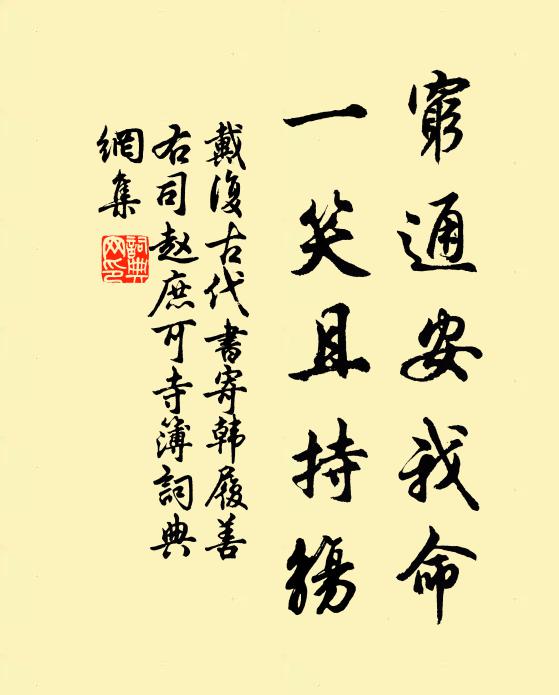 窮通安我命
一笑且持觴
戴復古代書寄韩履善
右司赵庶可寺簿詞典
網集
詞典
网印